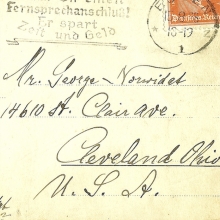 Fernsprechanschluß!
Er spart
Zeit und Geld
Deutsches Reich
Mr. George Norwidat
14610 St. Clair ave.
Cleveland Ohio
U. S. A.